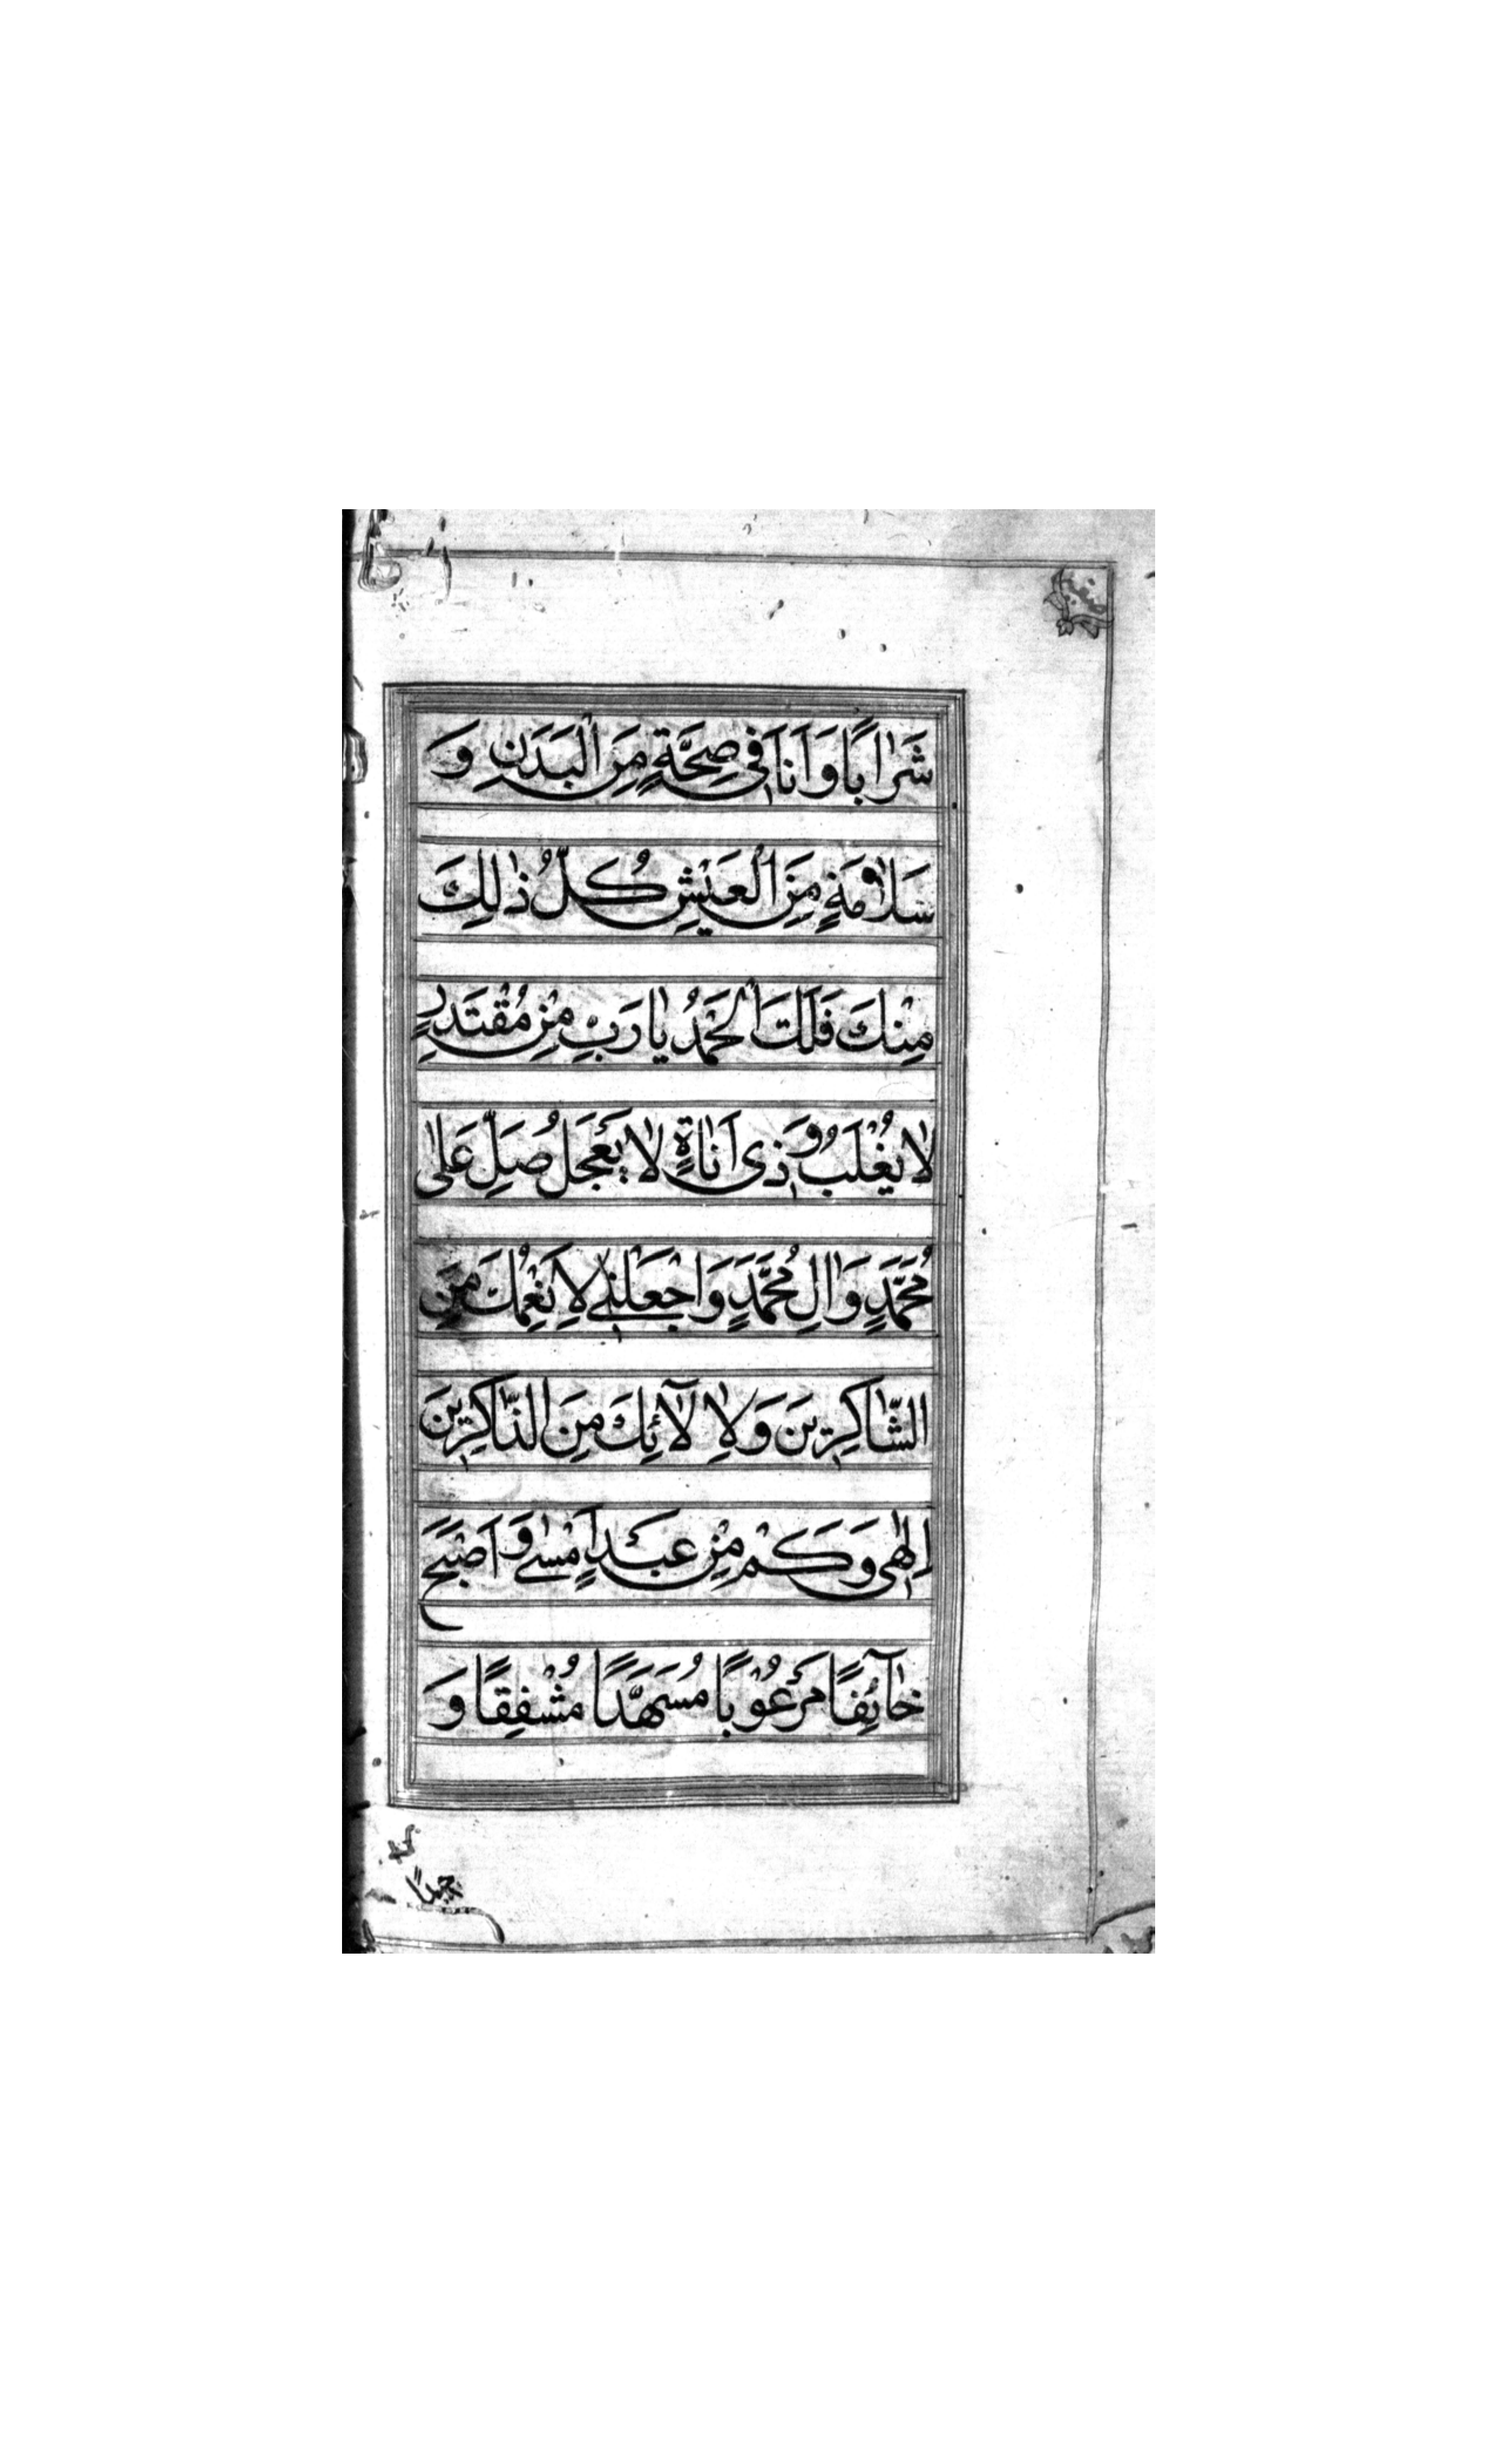 شَرٰابًا وَاَنَا فٖى صِحَّةٍ مِنَ الْبَدَنِ وَ
سَلٰامَةٍ مِنَ الْعَيْشِ كُلُّ ذٰلِكَ
مِنْكَ فَلَكَ الْحَمْدُ يٰا رَبِّ مِنْ مُقْتَدِرٍ
لٰا يُغْلَبُ وَ ذٖى اَنٰاةٍ لٰا يَعْجَلُ صَلِّ عَلٰى
مُحَمَّدٍ وَاٰلِ مُحَمَّدٍ وَاجْعَلْنٖى لِاَنْعُمِكَ مِنَ
الشّٰاكِرٖينَ وَلِاٰلٰآئِكَ مِنَ الذّٰاكِرٖينَ
اِلٰهٖى وَكَمْ مِنْ عَبْدٍ اَمْسٰى وَ اَصْبَحَ
خٰآئِفًا مَرْعُوْبًا مُسَهَّدًا مُشْفِقًا وَ